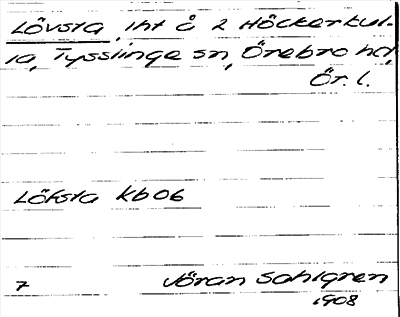 Lövsta, lht å 2 Höckerkul-
la, Tysslinge sn, Örebro hd,
Ör. l.
Löfsta Kb 06
7 Jöran Sahlgren
1908